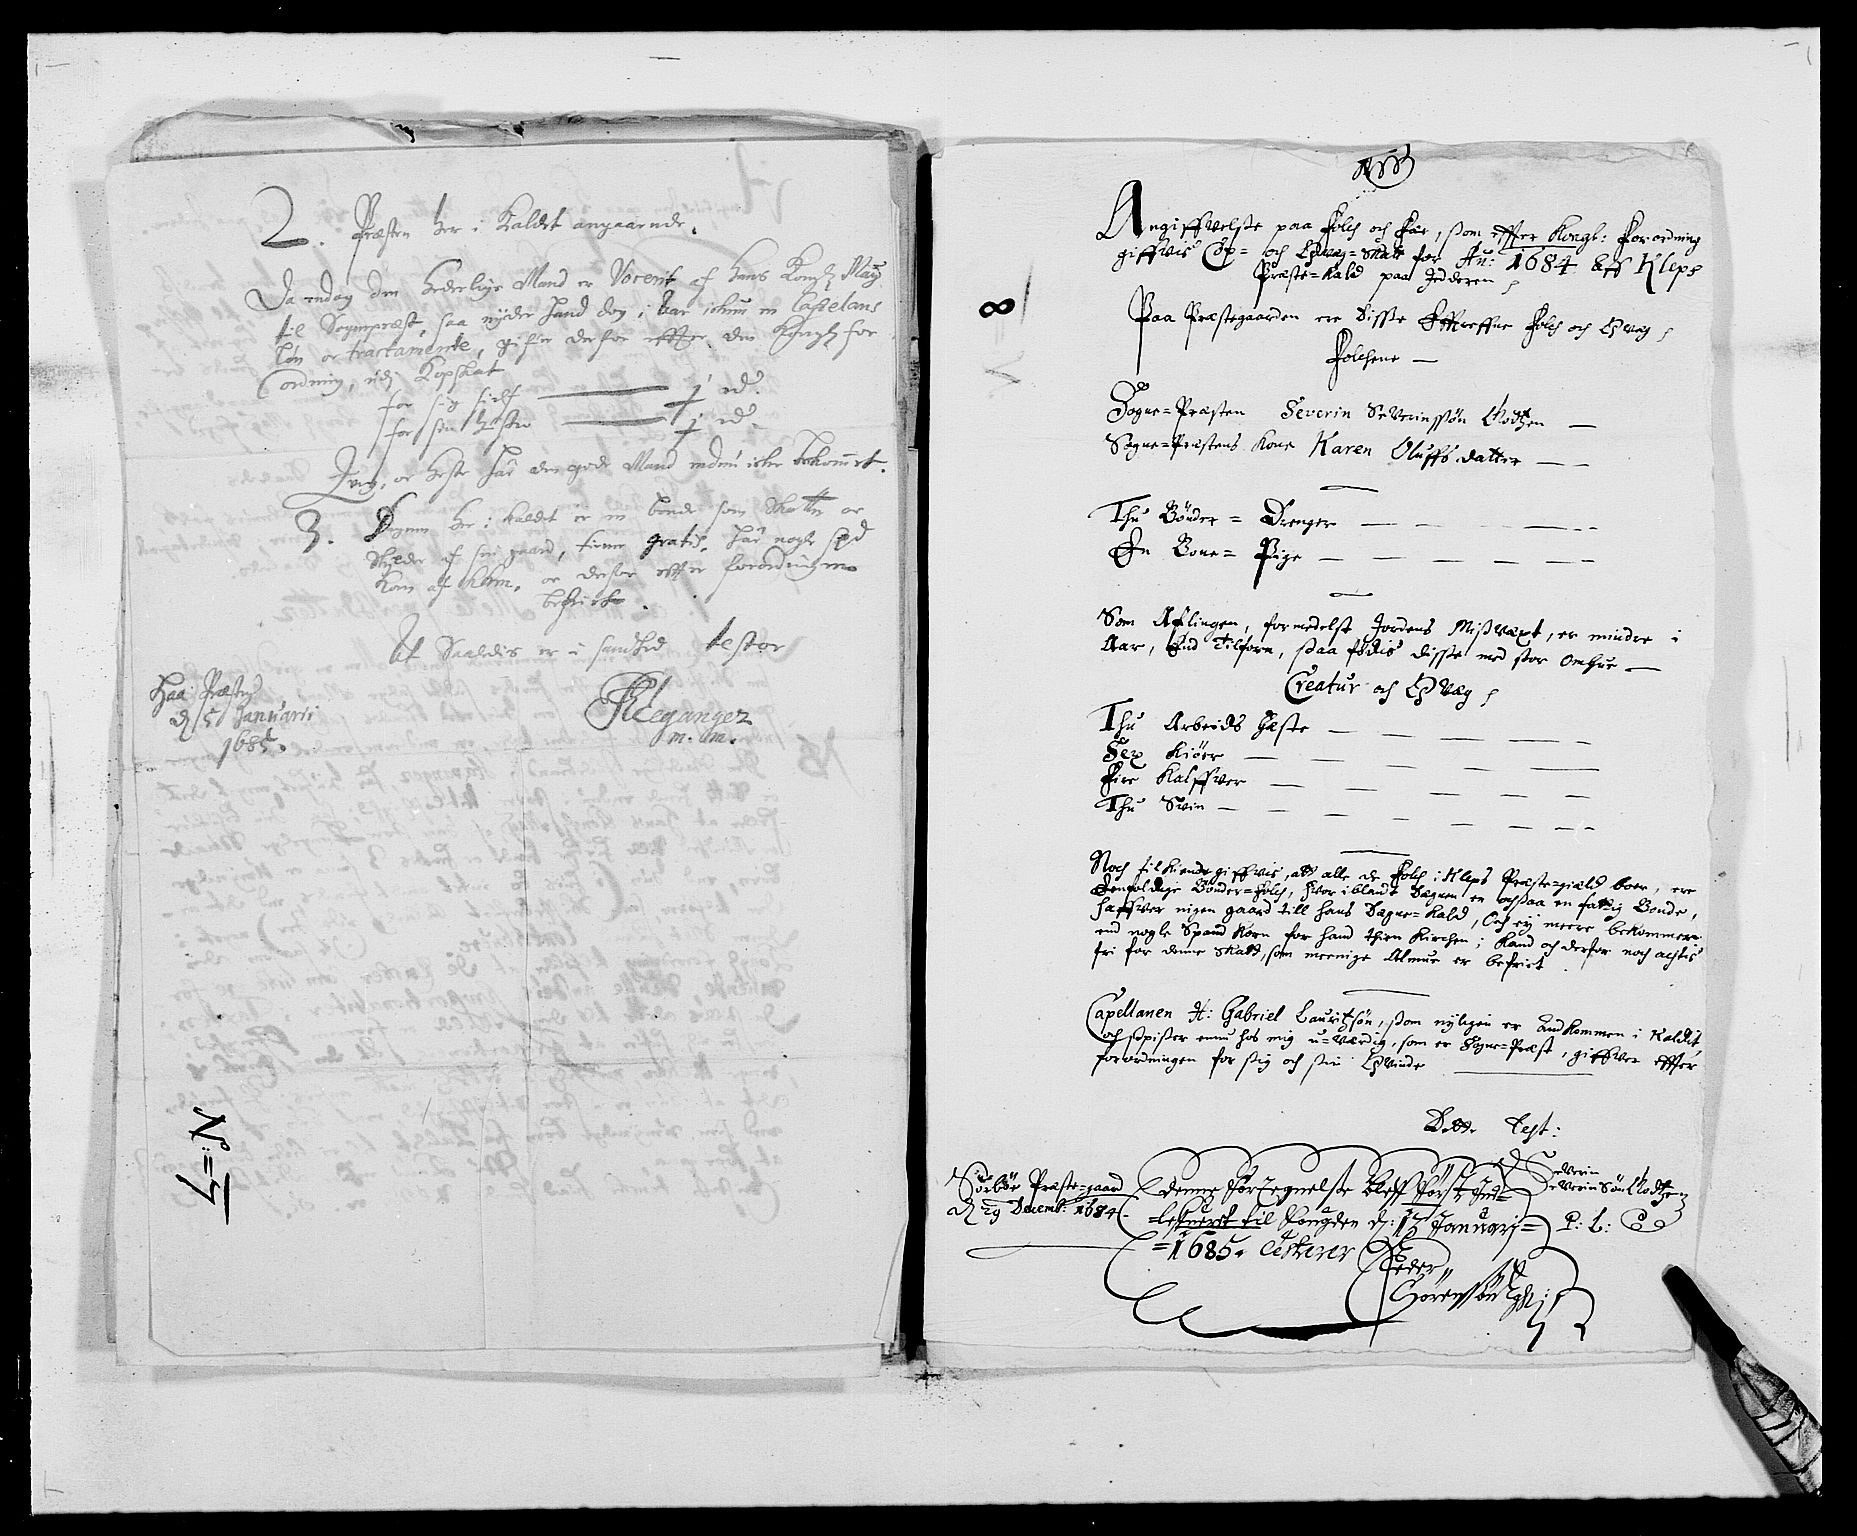 2. Præsten her i Kaldet angaaende.
Da endog den hederlige Mand er Voceret af hans Kongl. May:
til Sognepræst, saa nyder hand dog i aar ickun en Capelans
løn oc tractamente, gifver derfor effter den Kongl. for
ordning, udj Kopskat
for sig sielf j rd.
for sin høstru j rd.
Qveg, oc heste har den gode Mand endnu icke bekommet.
3. Degnen her i Kaldet er en bonde som Skatter oc
Skylder af sin gaard, tiener gratis, har nogle spd
Korn af Kirken, oc derfor effter forordningen
befriet.
At Saaledis er i sandhed testor
Haa Præstegd
d. 5 Januarii
1685.
m. m.
N:o 7
8
Angiffvelse paa Folch och Fæ, som effter Kongl: Forordning
giffvis Cop= och Qvæg=Skatt for Au: 1684 aff Kleps
Præste=Kald paa Jedderen
Paa Præstegaarden ere disse Effterffne Folch och Qvæg
Folchene
Sogne=Præsten Severin Severinssøn Glodtzen
Sogne=Præstens Kone Karen Oluffs datter
Thu Bønder= Drenger
En Bone= Pige
Som Aflingen, formedelst Jordens Misvæxt, er mindre i
Aar, End Tilforn, saa fødis disse med stor omhue
Creatur och Qvæg
Thu Arbeids Hæste
Sex Kiøer
Fire Kalffver
Thu Svin
Noch tilkiende giffvis, att alle de Folch i Kleps Præste=gield boer, ere
Eenfoldige Bønder=Folch, hvor iblandt Dægnen er ochsaa en fattig Bonde,
haffver ingen gaard till hans Dægne=Kald, Och ey meere bekommer
end nogle Spand Korn for hand thien Kirchen; Kand och derfor noch actis
fri for denne Skatt, som meenige Almue er befriet.
Capellanen H: Gabriel Lauritzøn, som nyligen er Ankommen i Kaldit
och spiser ennu hos mig u=værdig, som er Sogne=Præst, giffver effter
forordningen for sig och sin Qvinde
Dette Test:
Severin
Severinsøn Glodtzen
Sørbøe Præste=gaard
d. 29 Decemb: 1684.
denne Fortegnelse bleff først Ind=
=lefueret til Fougden d: 13 Januarj=
=1685. Testerer
Peder
Sørenssøn